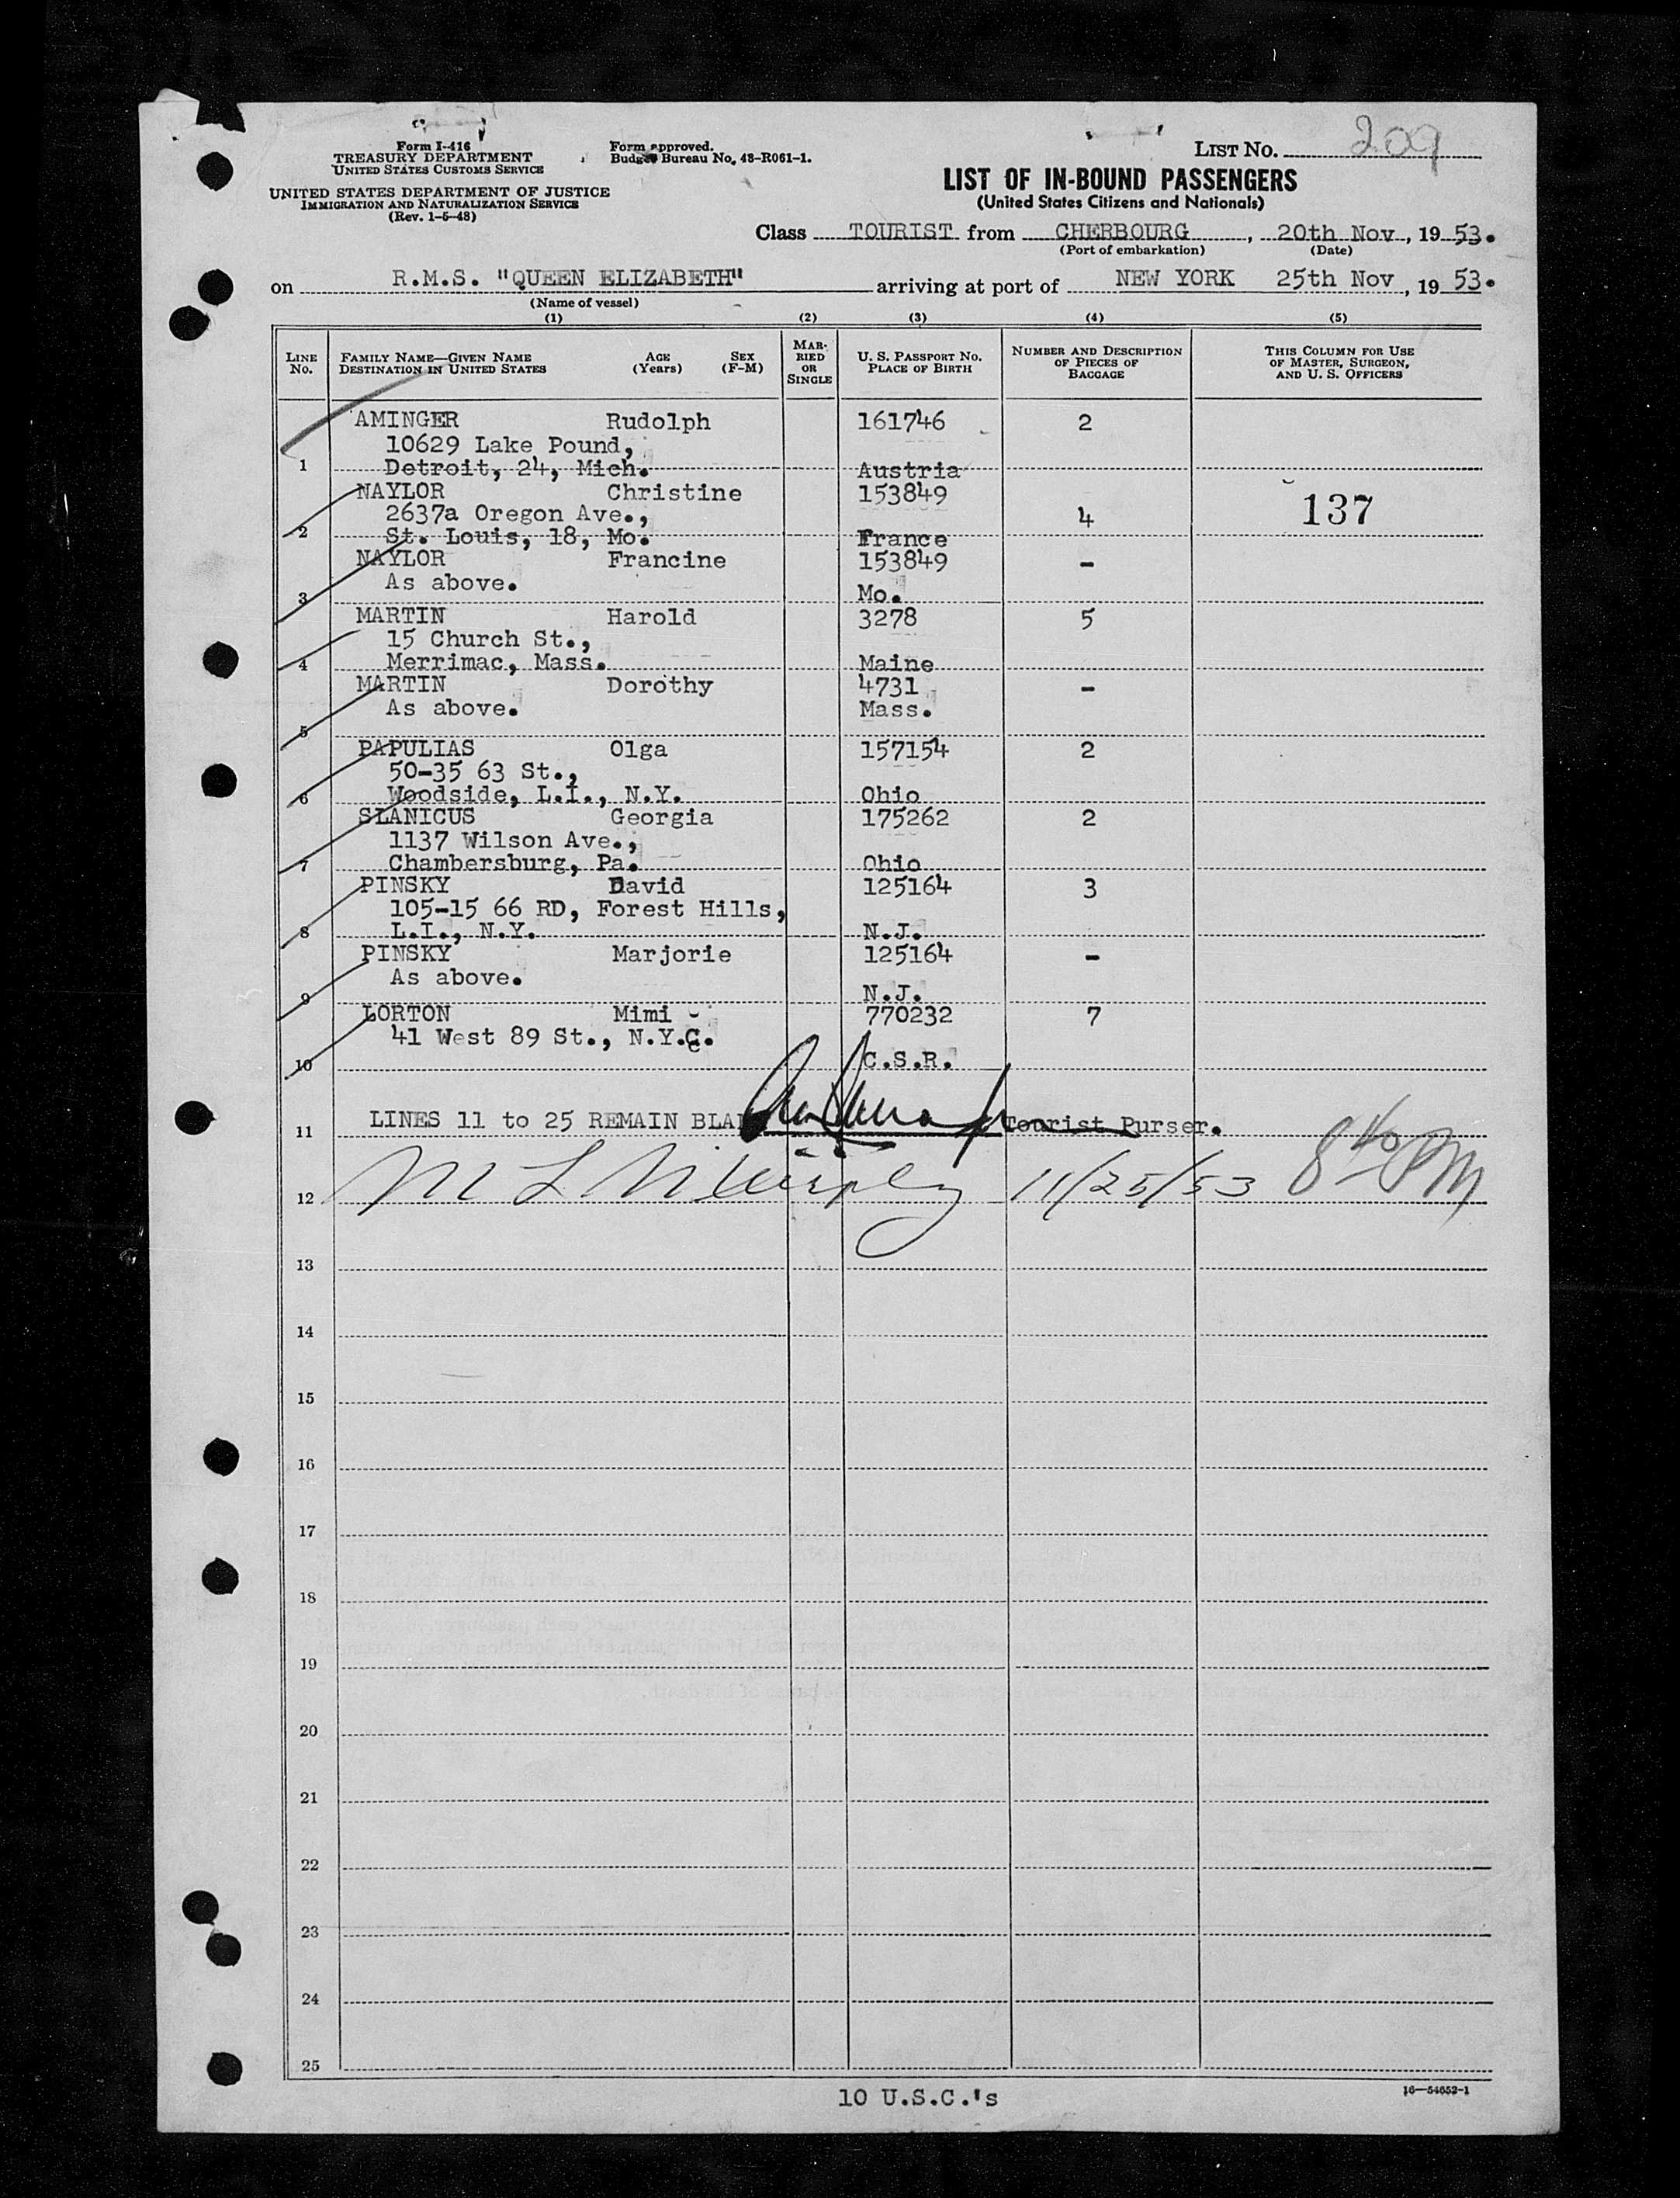 Form I-416
TREASURY DEPARTMENT
UNITED STATES CUSTOMS SERVICE
UNITED STATES DEPARTMENT OF JUSTICE
IMMIGRATION AND NATURALIZATION SERVICE
(Rev. 1-5-48)
Form approved.
Budget Bureau No. 48-R061-1.
LIST No. 209
LIST OF IN-BOUND PASSENGERS
(United States Citizens and Nationals)
Class TOURIST from CHERBOURG, 20th Nov, 19 53.
(Port of embarkation) (Date)
on R.M.S. "QUEEN ELIZABETH" arriving at port of NEW YORK 25th Nov, 19 53.
(Name of vessel)
(1) (2) (3) (4) (5)
LINE No. FAMILY NAME—GIVEN NAME DESTINATION IN UNITED STATES AGE (Years) SEX (F-M) MARRIED OR SINGLE U. S. PASSPORT No. PLACE OF BIRTH NUMBER AND DESCRIPTION OF PIECES OF BAGGAGE THIS COLUMN FOR USE OF MASTER, SURGEON, AND U. S. OFFICERS
AMINGER Rudolph 161746 2
10629 Lake Pound,
1 Detroit, 24, Mich. Austria
NAYLOR Christine 153849
2637a Oregon Ave., 4 137
2 St. Louis, 18, Mo. France
NAYLOR Francine 153849 -
As above.
3 Mo.
MARTIN Harold 3278 5
15 Church St.,
4 Merrimac, Mass. Maine
MARTIN Dorothy 4731 -
As above. Mass.
5
PAPULIAS Olga 157154 2
50-35 63 St.,
6 Woodside, L.I., N.Y. Ohio
SLANICUS Georgia 175262 2
1137 Wilson Ave.,
7 Chambersburg, Pa. Ohio
PINSKY David 125164 3
105-15 66 RD, Forest Hills,
8 L.I., N.Y. N.J.
PINSKY Marjorie 125164 -
As above.
9 N.J.
LORTON Mimi 770232 7
41 West 89 St., N.Y.C.
10 C.S.R.
11 LINES 11 to 25 REMAIN BLA Tourist Purser.
12 M L Murphy 11/25/53 8 40 PM
13
14
15
16
17
18
19
20
21
22
23
24
25
10 U.S.C.'s
16—54652-1